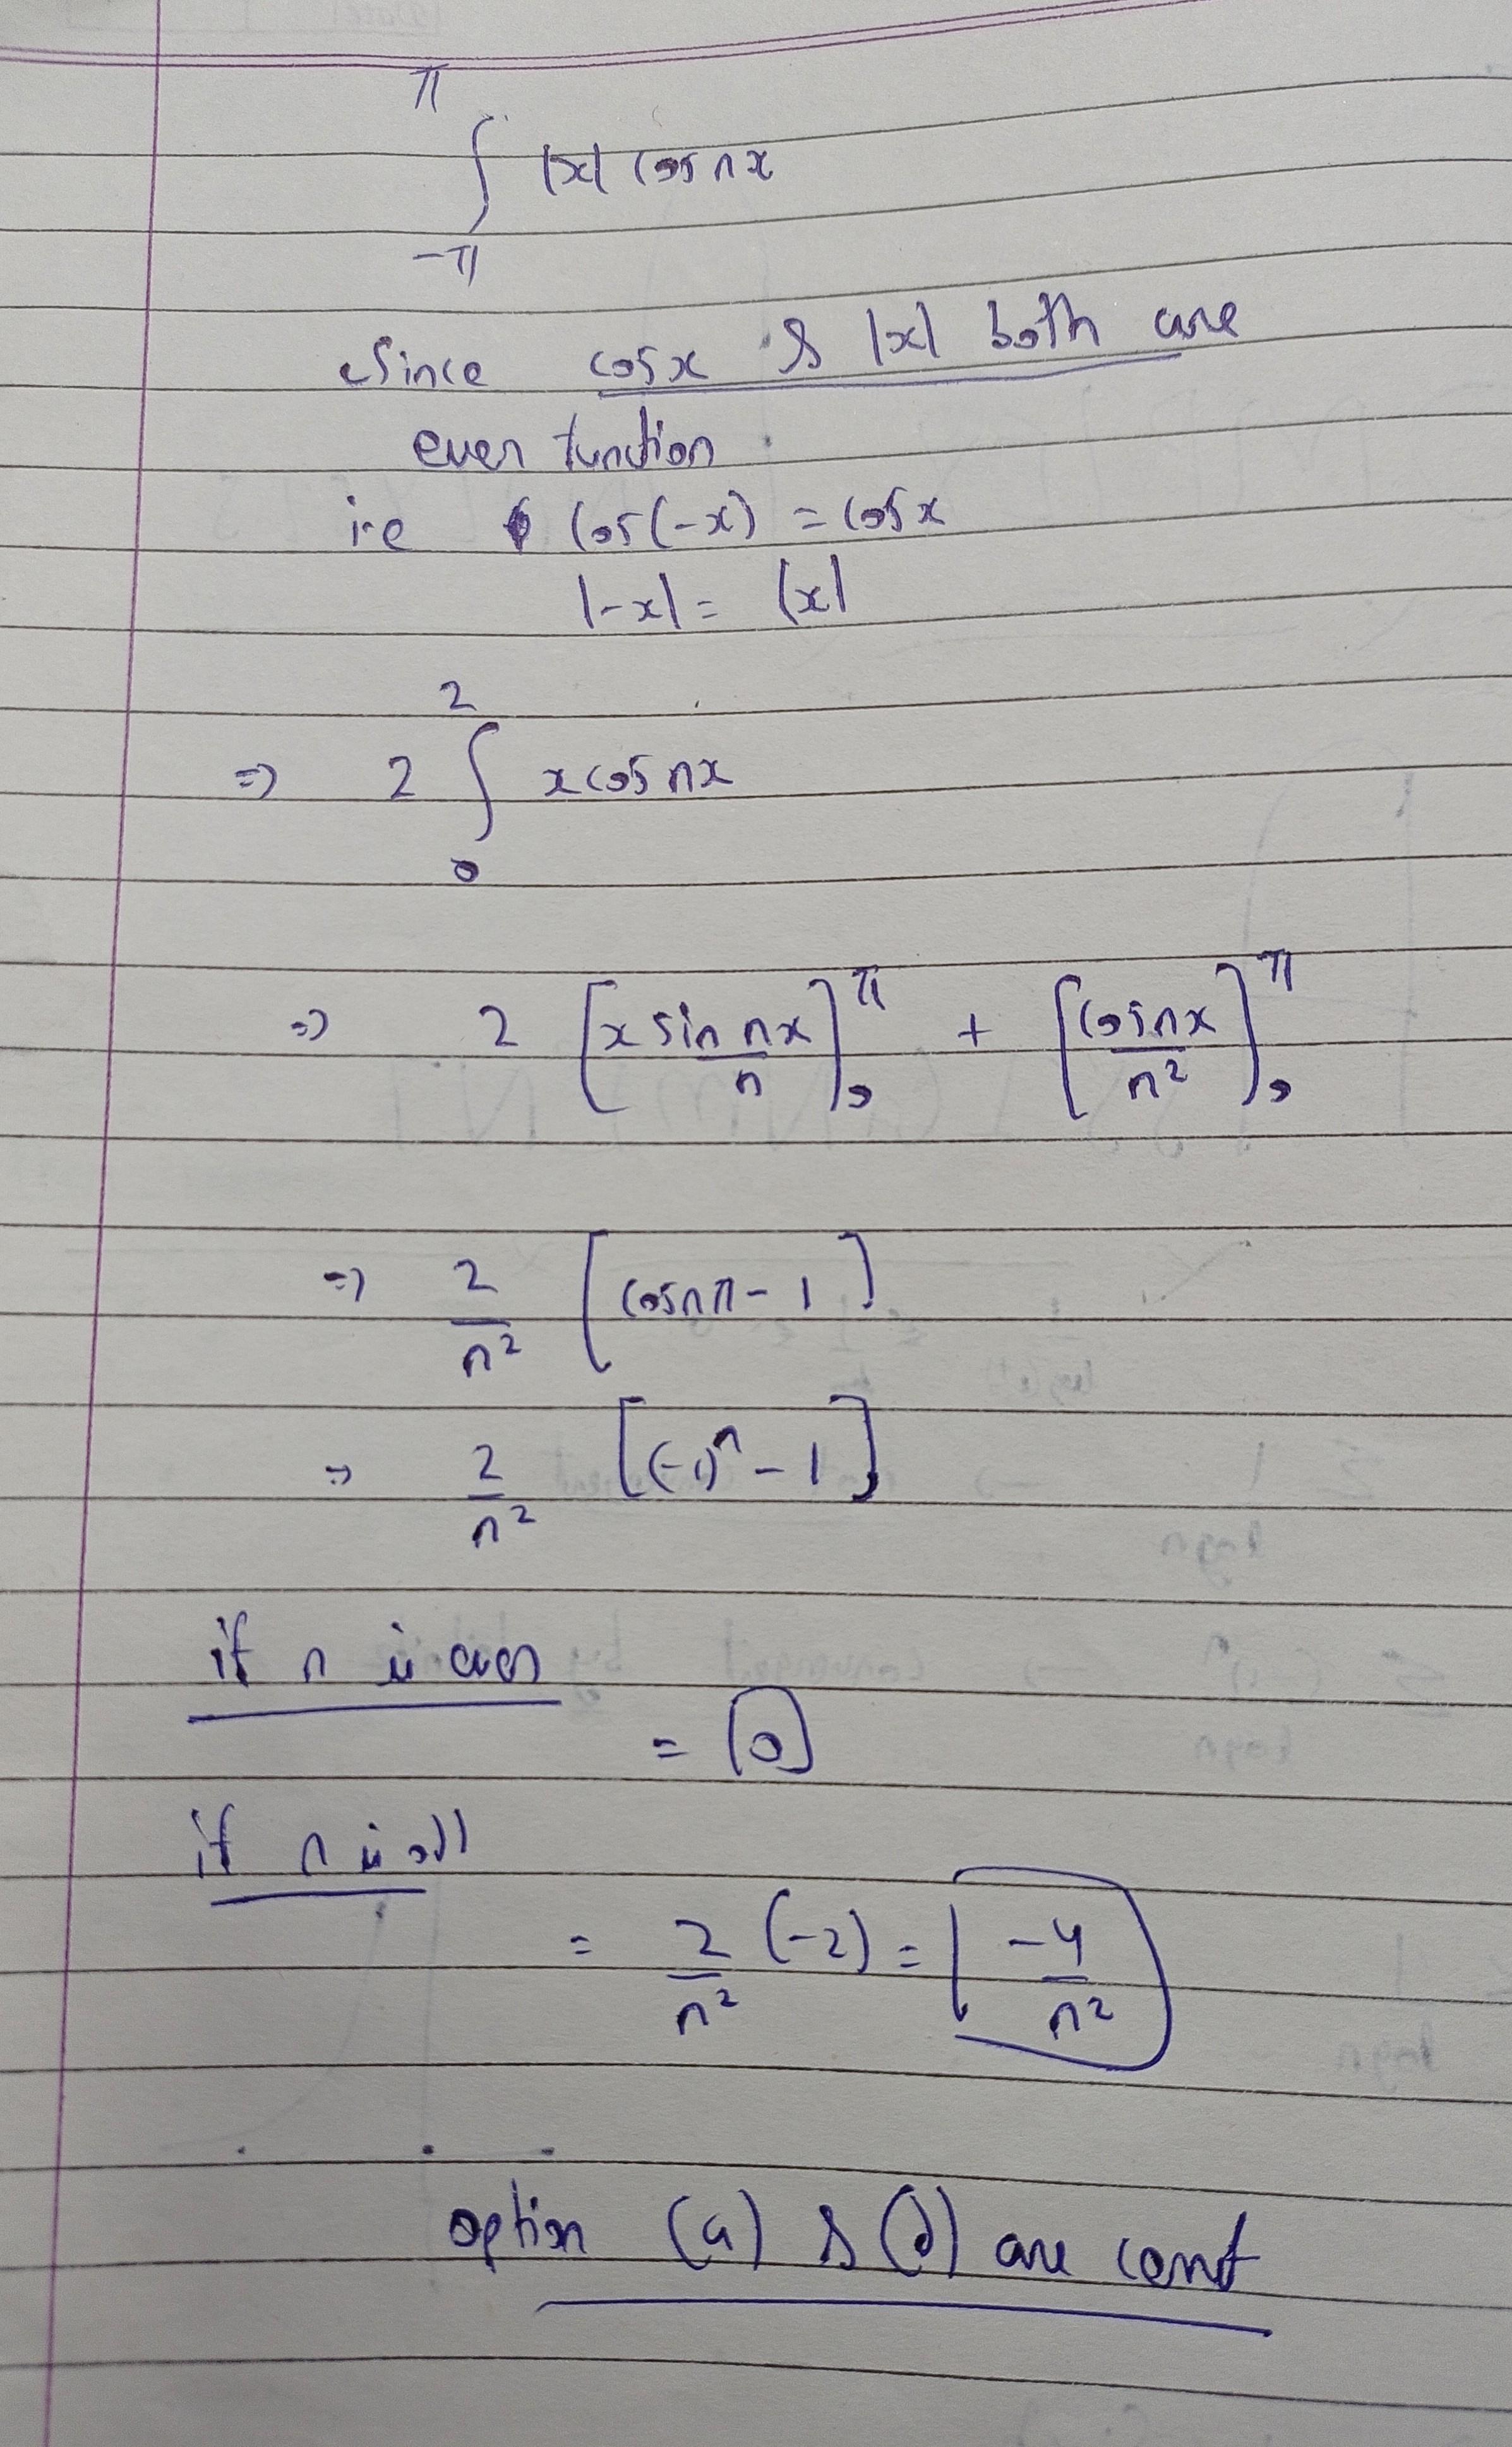 ∫_{-π}^{π} |x| cos nx
Since cosx & |x| both are
even function
i.e cos(-x) = cosx
|-x| = |x|
=> 2 ∫_{0}^{2} x cos nx
=> 2 [x sin nx / n]_{0}^{π} + [cos nx / n²]_{0}^{π}
=> 2/n² [cos nπ - 1]
=> 2/n² [(-1)^n - 1]
if n is even
= 0
if n is odd
= 2/n² (-2) = -4/n²
option (a) & (d) are